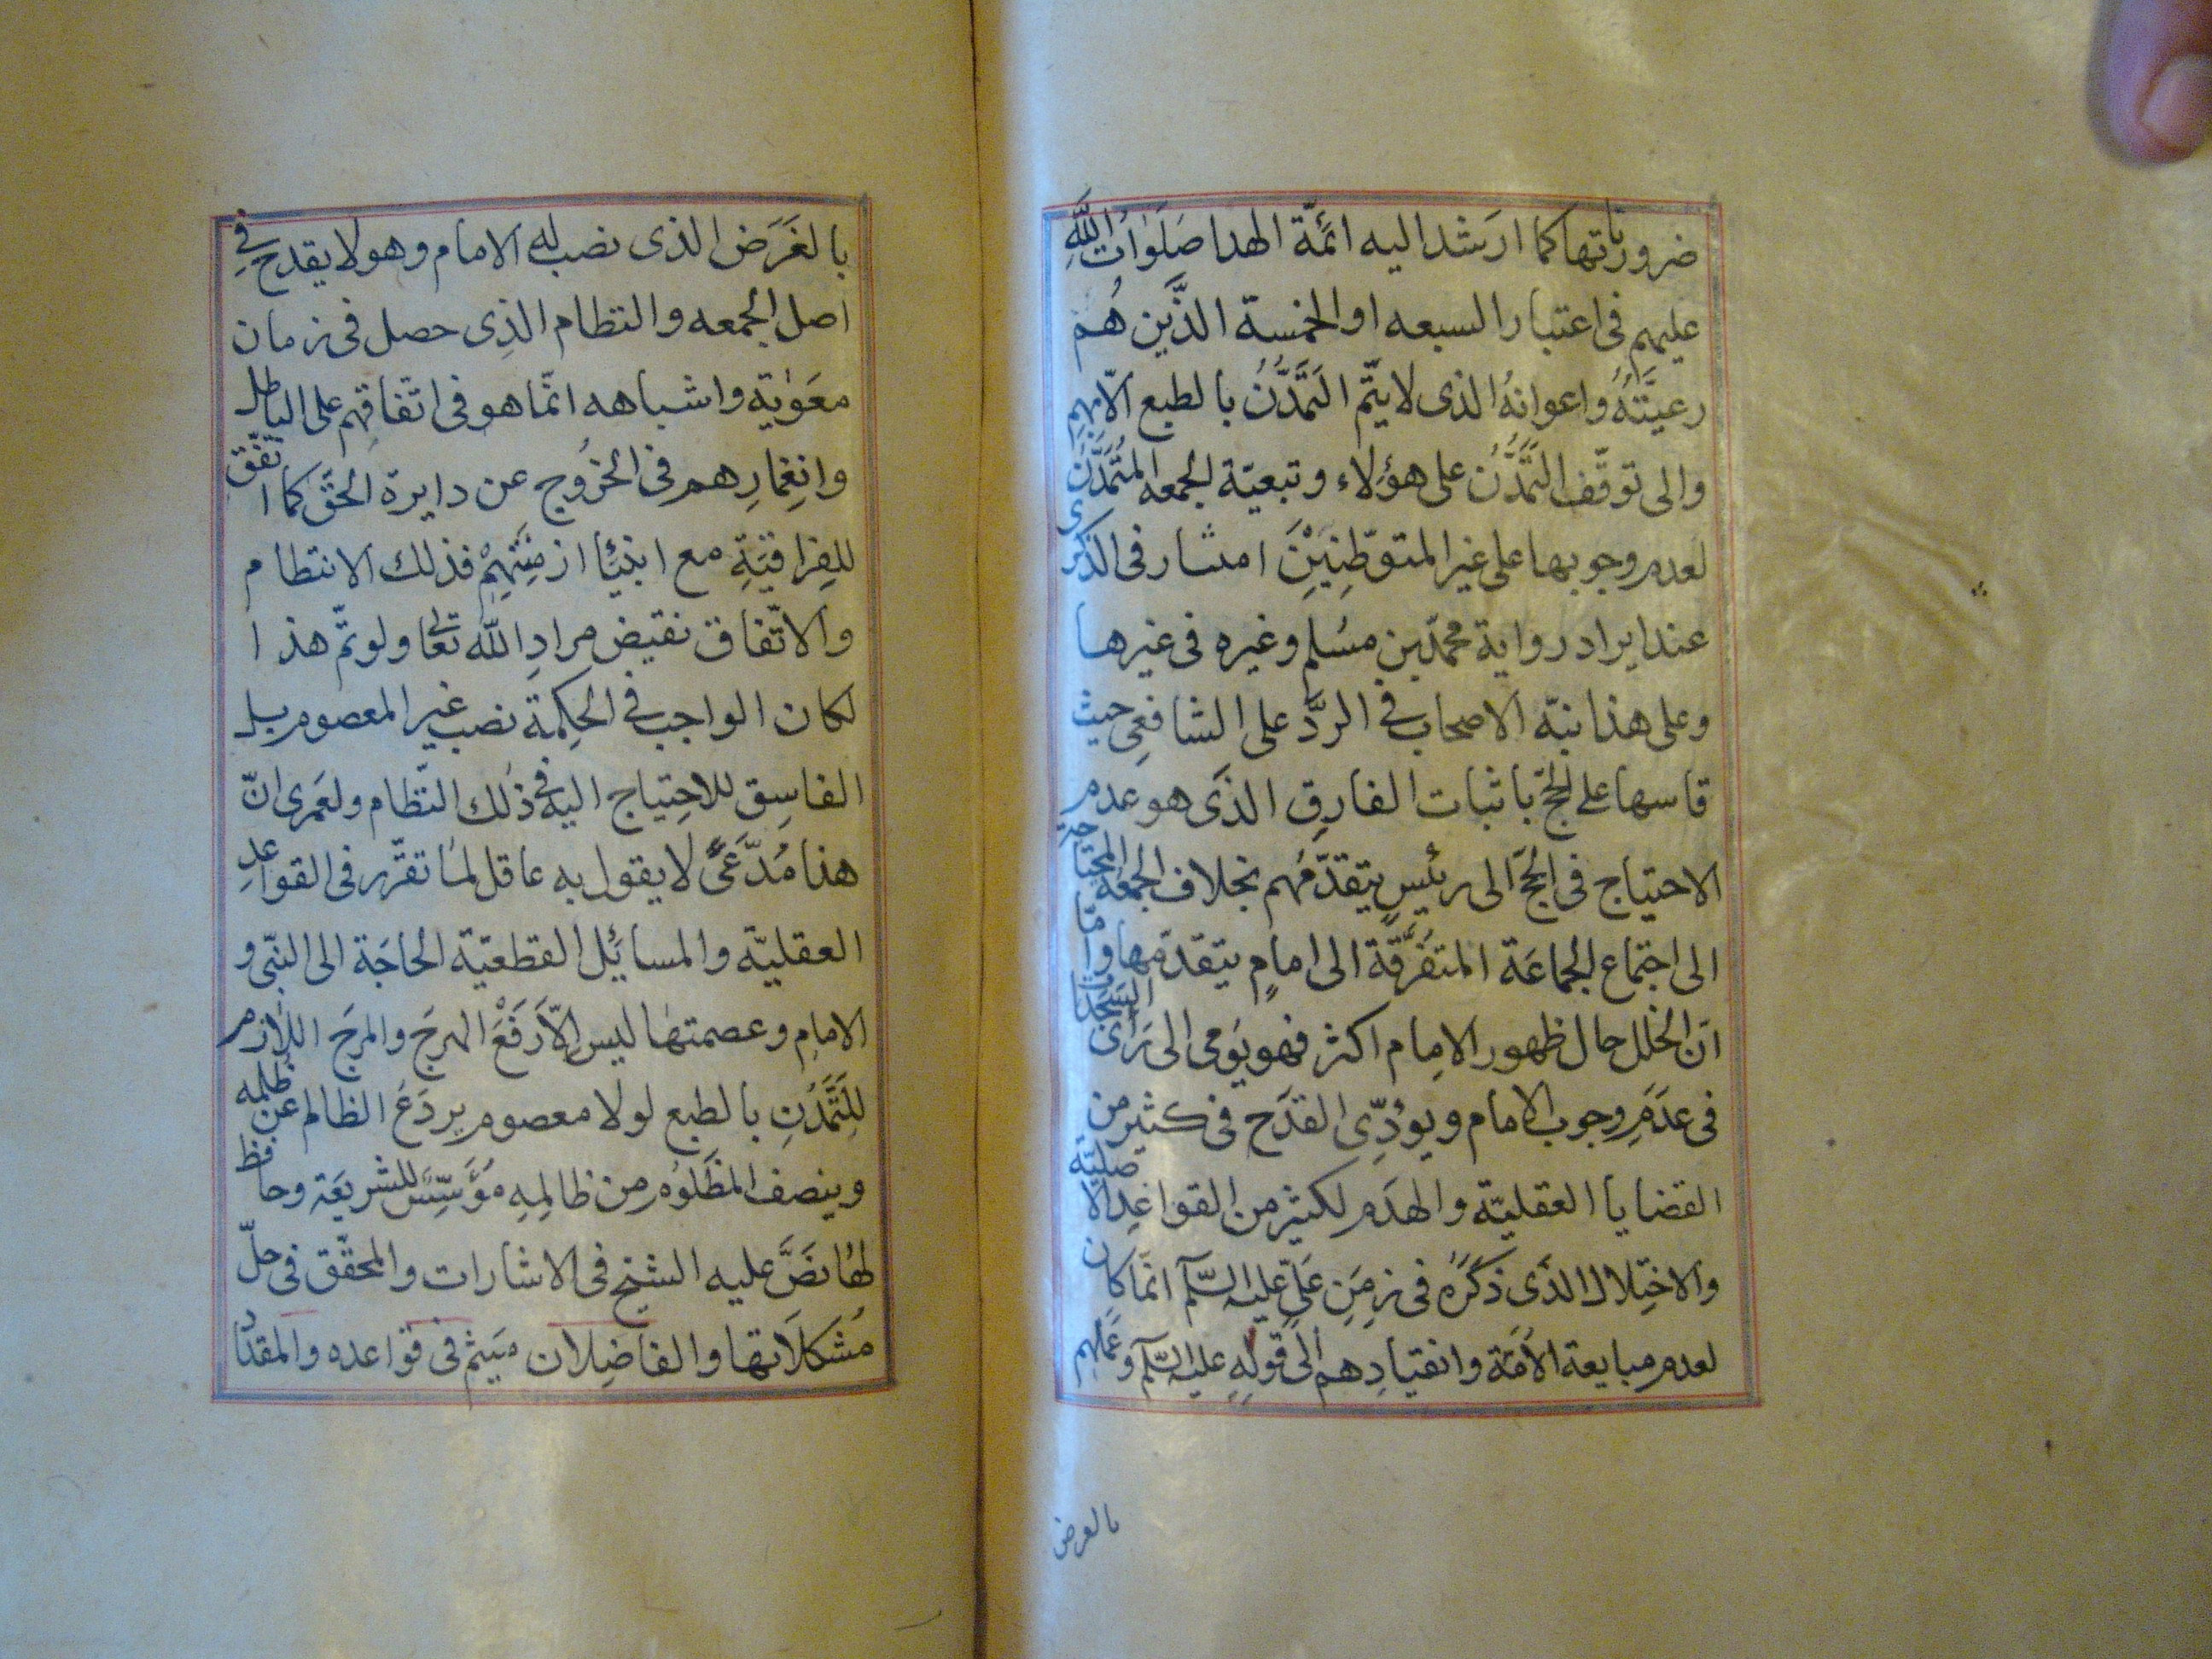 ضروریاتها كما ارشد اليه ائمّة الهدا صَلَوٰاتُ اللّٰهِ
عليهم فى اعتبار السبعه او الخمسة الذَّين هُم
رعيَّتهُ واعوانهُ الذى لا يتّم التَمدُّنُ بالطبع الّا بهم
والى توقّف التَمَّدُّن على هؤلاء وتبعيّة الجمعه المتَمدّن
لعدم وجوبها على غير المتوطّنِيْنَ اشار فى الذكرى
عند ايراد رواية محمّد بن مسُلم وغيره فى غيرها
وعلى هذا نبّه الاصحاب فى الردَّ على الشافعى حيث
قاسها على الحجّ باثبات الفارق الذَى هو عدم
الاحتياج فى الحجّ الى رئيسٍ يتقدّمُهم بخلاف الجمعه المحتاجة
الى اجتماع الجماعَة المتفرّقة الى امامٍ يتقدمها وامّا
انّ الخلل حال ظهور الامام اكثر فهو يوَمى الى رَاى
فى عدَمِ وجوب الامام ويؤدّى القدَح فى كثير من
القضايا العقليّة والهدَم لكثير من القواعِد الاصليّة
والاختِلال الذَى ذكرَهُ فى زمَنِ عَلىّ عليه السّلم انّما كان
لعدم مبايعة الأمّة وانقيادِهم الى قوَلِهِ عليه السّلم وعَملهم
بالغرض
بالغَرَض الذى نصب له الامام وهو لا يقدح فى
اصل الجمعه والنظام الذِى حصل فى زمان
معَوٰية واشباهه انّما هو فى اتّفاقِهم على الباطل
وانغِمارِهم فى الخرُوج عن دايرة الحَقّ كما اتّفق
للفِراقيَةِ مع ابنيٰا ازمنَتِهِمْ فذلك الانتظام
والاتّفاق نقيض مرادِ اللّٰه تعالى ولو تمّ هذا
لكان الواجب فى الحِكمة نصب غير المعصوم بل
الفاسِق للاحِتياج اليه فى ذلك النّظام ولعَمرى انّ
هذا مُدَّعىً لا يقول به عاقل لما تقرّر فى القواعِد
العقليّة والمسائِل القطعيّة الحاجَة الى النبّى و
الامام وعصمتهٰا ليس الّا رَفْعَ الهرجَ والمرجَ اللازم
للِتَمَّدُنِ بالطبع لولا معصوم يردَعَ الظالم عن ظلمه
وينصف المظَلوُم من ظالِمِهِ مَؤَسّسٌ للشريعَة وحافظ
لهٰا نصَّ عليه الشيخ فى الاشارات والمحقّق فى حلّ
مُشكلاَتها والفاضِلان ميثم فى قواعده والمقداد